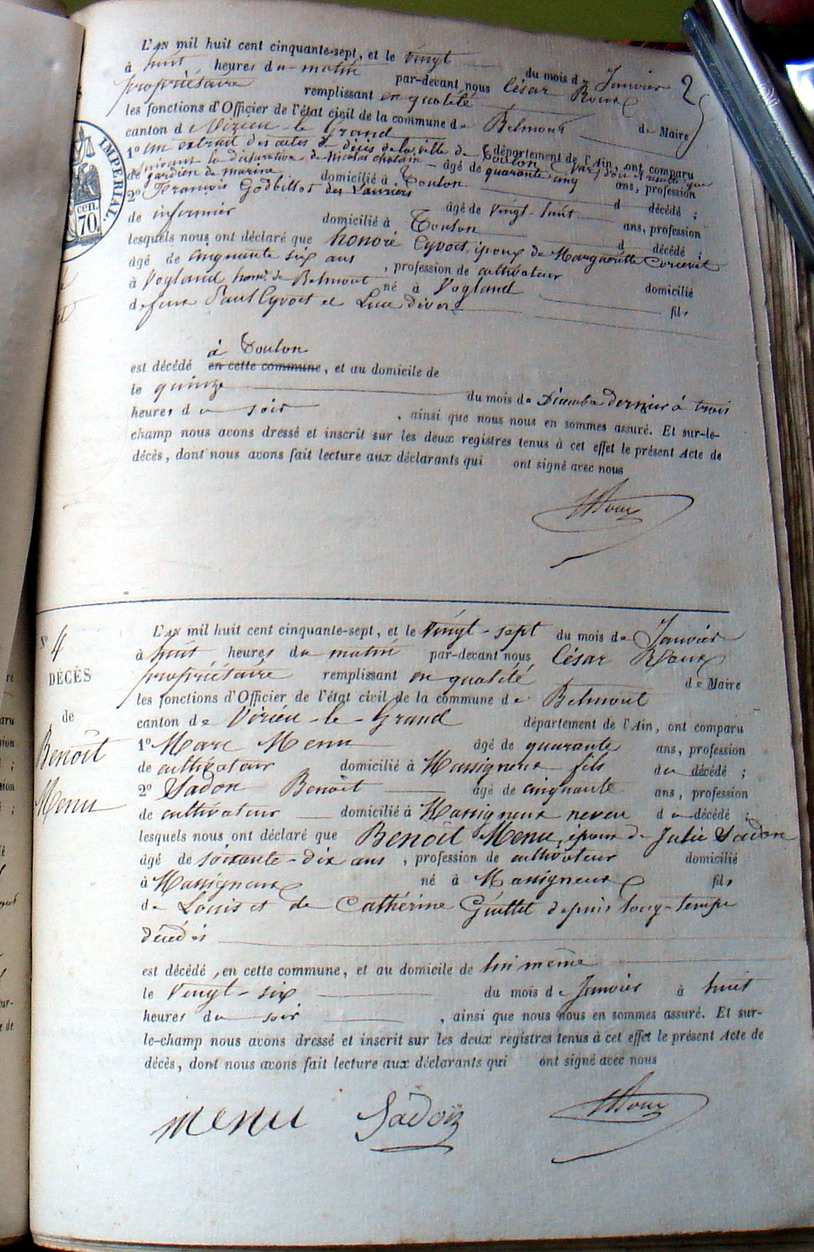 L'AN mil huit cent cinquante-sept, et le vingt du mois de Janvier 25
à huit heures du matin par-devant nous César Roux
propriétaire remplissant en qualité de Maire
les fonctions d'Officier de l'état civil de la commune de Belmont
canton de Virieu-le-Grand département de l'Ain, ont comparu
1° un extrait des actes de décès de la ville de Toulon (Var) d'où il résulte que
suivant la déclaration de Nicolas âgé de quarante cinq ans, profession
de gardien de marine domicilié à Toulon d décédé ;
2° François Godbillot des Vanriers âgé de vingt huit ans, profession
de infirmier domicilié à Toulon d décédé ;
lesquels nous ont déclaré que honoré Cyvoct époux de Marguerite
âgé de cinquante six ans , profession de cultivateur domicilié
à Vogland hom. de Belmont né à Vogland fils
de feux Paul Cyvoct et
à Toulon
est décédé en cette commune, et au domicile de
le quinze du mois de Décembre dernier à trois
heures du soir , ainsi que nous nous en sommes assuré. Et sur-le-
champ nous avons dressé et inscrit sur les deux registres tenus à cet effet le présent Acte de
décès, dont nous avons fait lecture aux déclarants qui ont signé avec nous
Roux
N° 4
DÉCÈS
de
Benoît
Menu
L'AN mil huit cent cinquante-sept, et le vingt-sept du mois de Janvier
à huit heures du matin par-devant nous César Roux
propriétaire remplissant en qualité de Maire
les fonctions d'Officier de l'état civil de la commune de Belmont
canton de Virieu-le-Grand département de l'Ain, ont comparu
1° Marc Menu âgé de quarante ans, profession
de cultivateur domicilié à Massigneux fils du décédé ;
2° Sadon Benoît âgé de cinquante ans, profession
de cultivateur domicilié à Massigneux neveu du décédé ;
lesquels nous ont déclaré que Benoît Menu, époux de Julie Sadon
âgé de soixante-dix ans , profession de cultivateur domicilié
à Massigneux né à Massigneux fils
de Louis et de Cathérine Guillet depuis long-temps
décédés
est décédé, en cette commune, et au domicile de lui même
le vingt-six du mois de Janvier à huit
heures du soir , ainsi que nous nous en sommes assuré. Et sur-
le-champ nous avons dressé et inscrit sur les deux registres tenus à cet effet le présent Acte de
décès, dont nous avons fait lecture aux déclarants qui ont signé avec nous
menu Sadon Roux
IMPERIAL
cen.
70